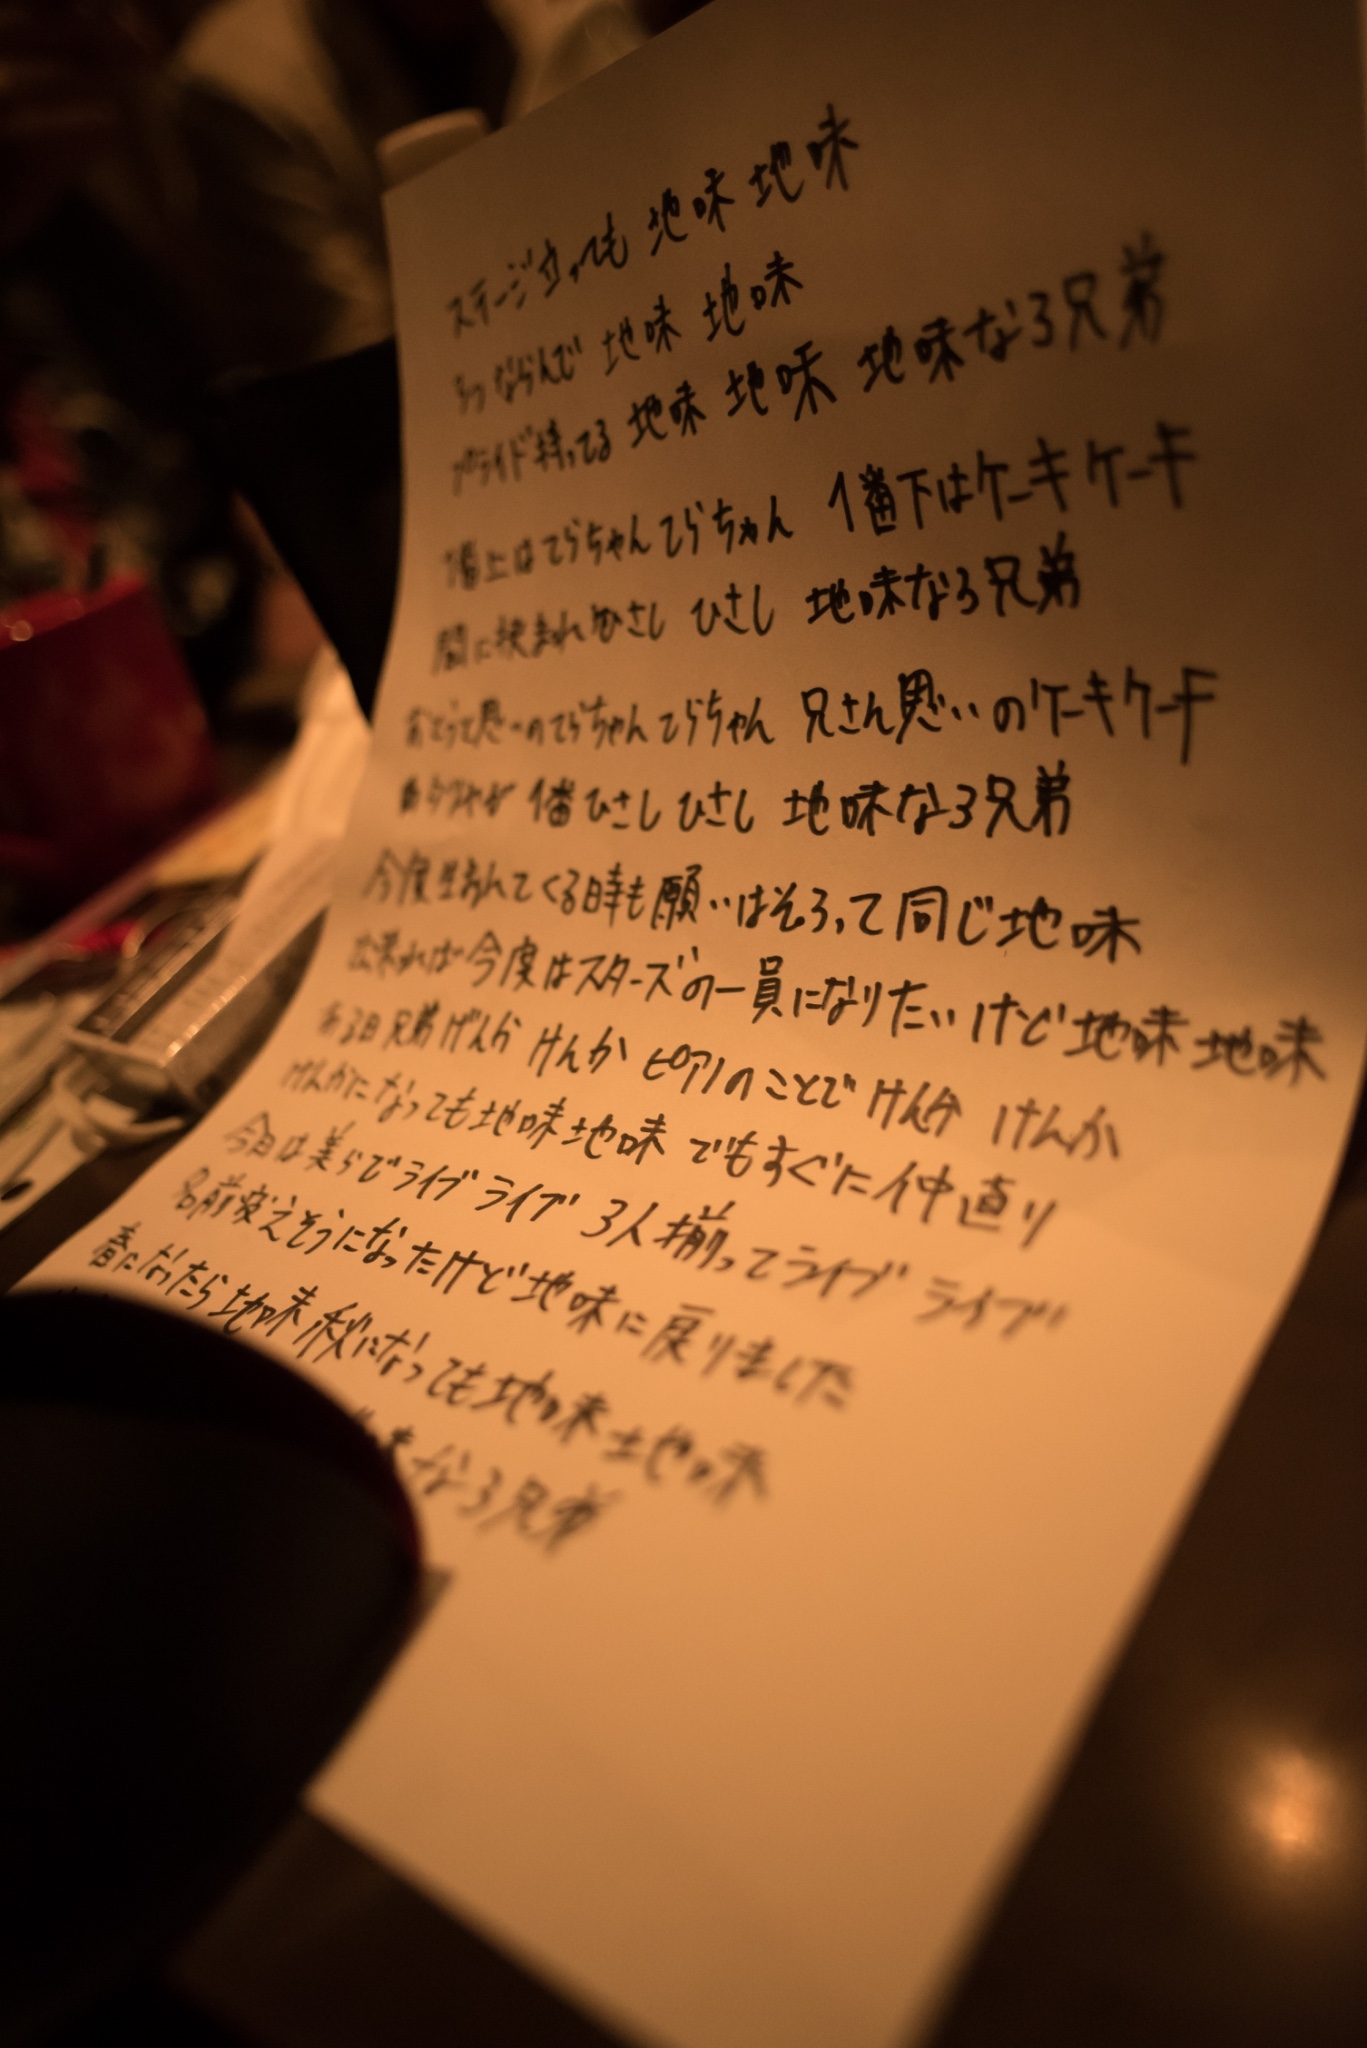 ステージ立っても 地味 地味
3つならんで 地味 地味
プライド持ってる 地味 地味 地味な3兄弟
1番上はてらちゃんてらちゃん 1番下はケーキケーキ
間に挟まれひさし ひさし 地味な3兄弟
おとうと思いのてらちゃんてらちゃん 兄さん思いのケーキケーキ
自分が 1番ひさしひさし 地味な3兄弟
今度生まれてくる時も願いはそろって同じ地味
出来れば今度はスターズの一員になりたいけど地味 地味
ある日兄弟げんか けんか ピアノのことでけんか けんか
けんかになっても地味地味 でもすぐに仲直り
今日は美らでライブ ライブ 3人揃ってライブ ライブ
名前変えそうになったけど地味に戻りました
春になったら地味 秋になっても地味 地味
味な3兄弟